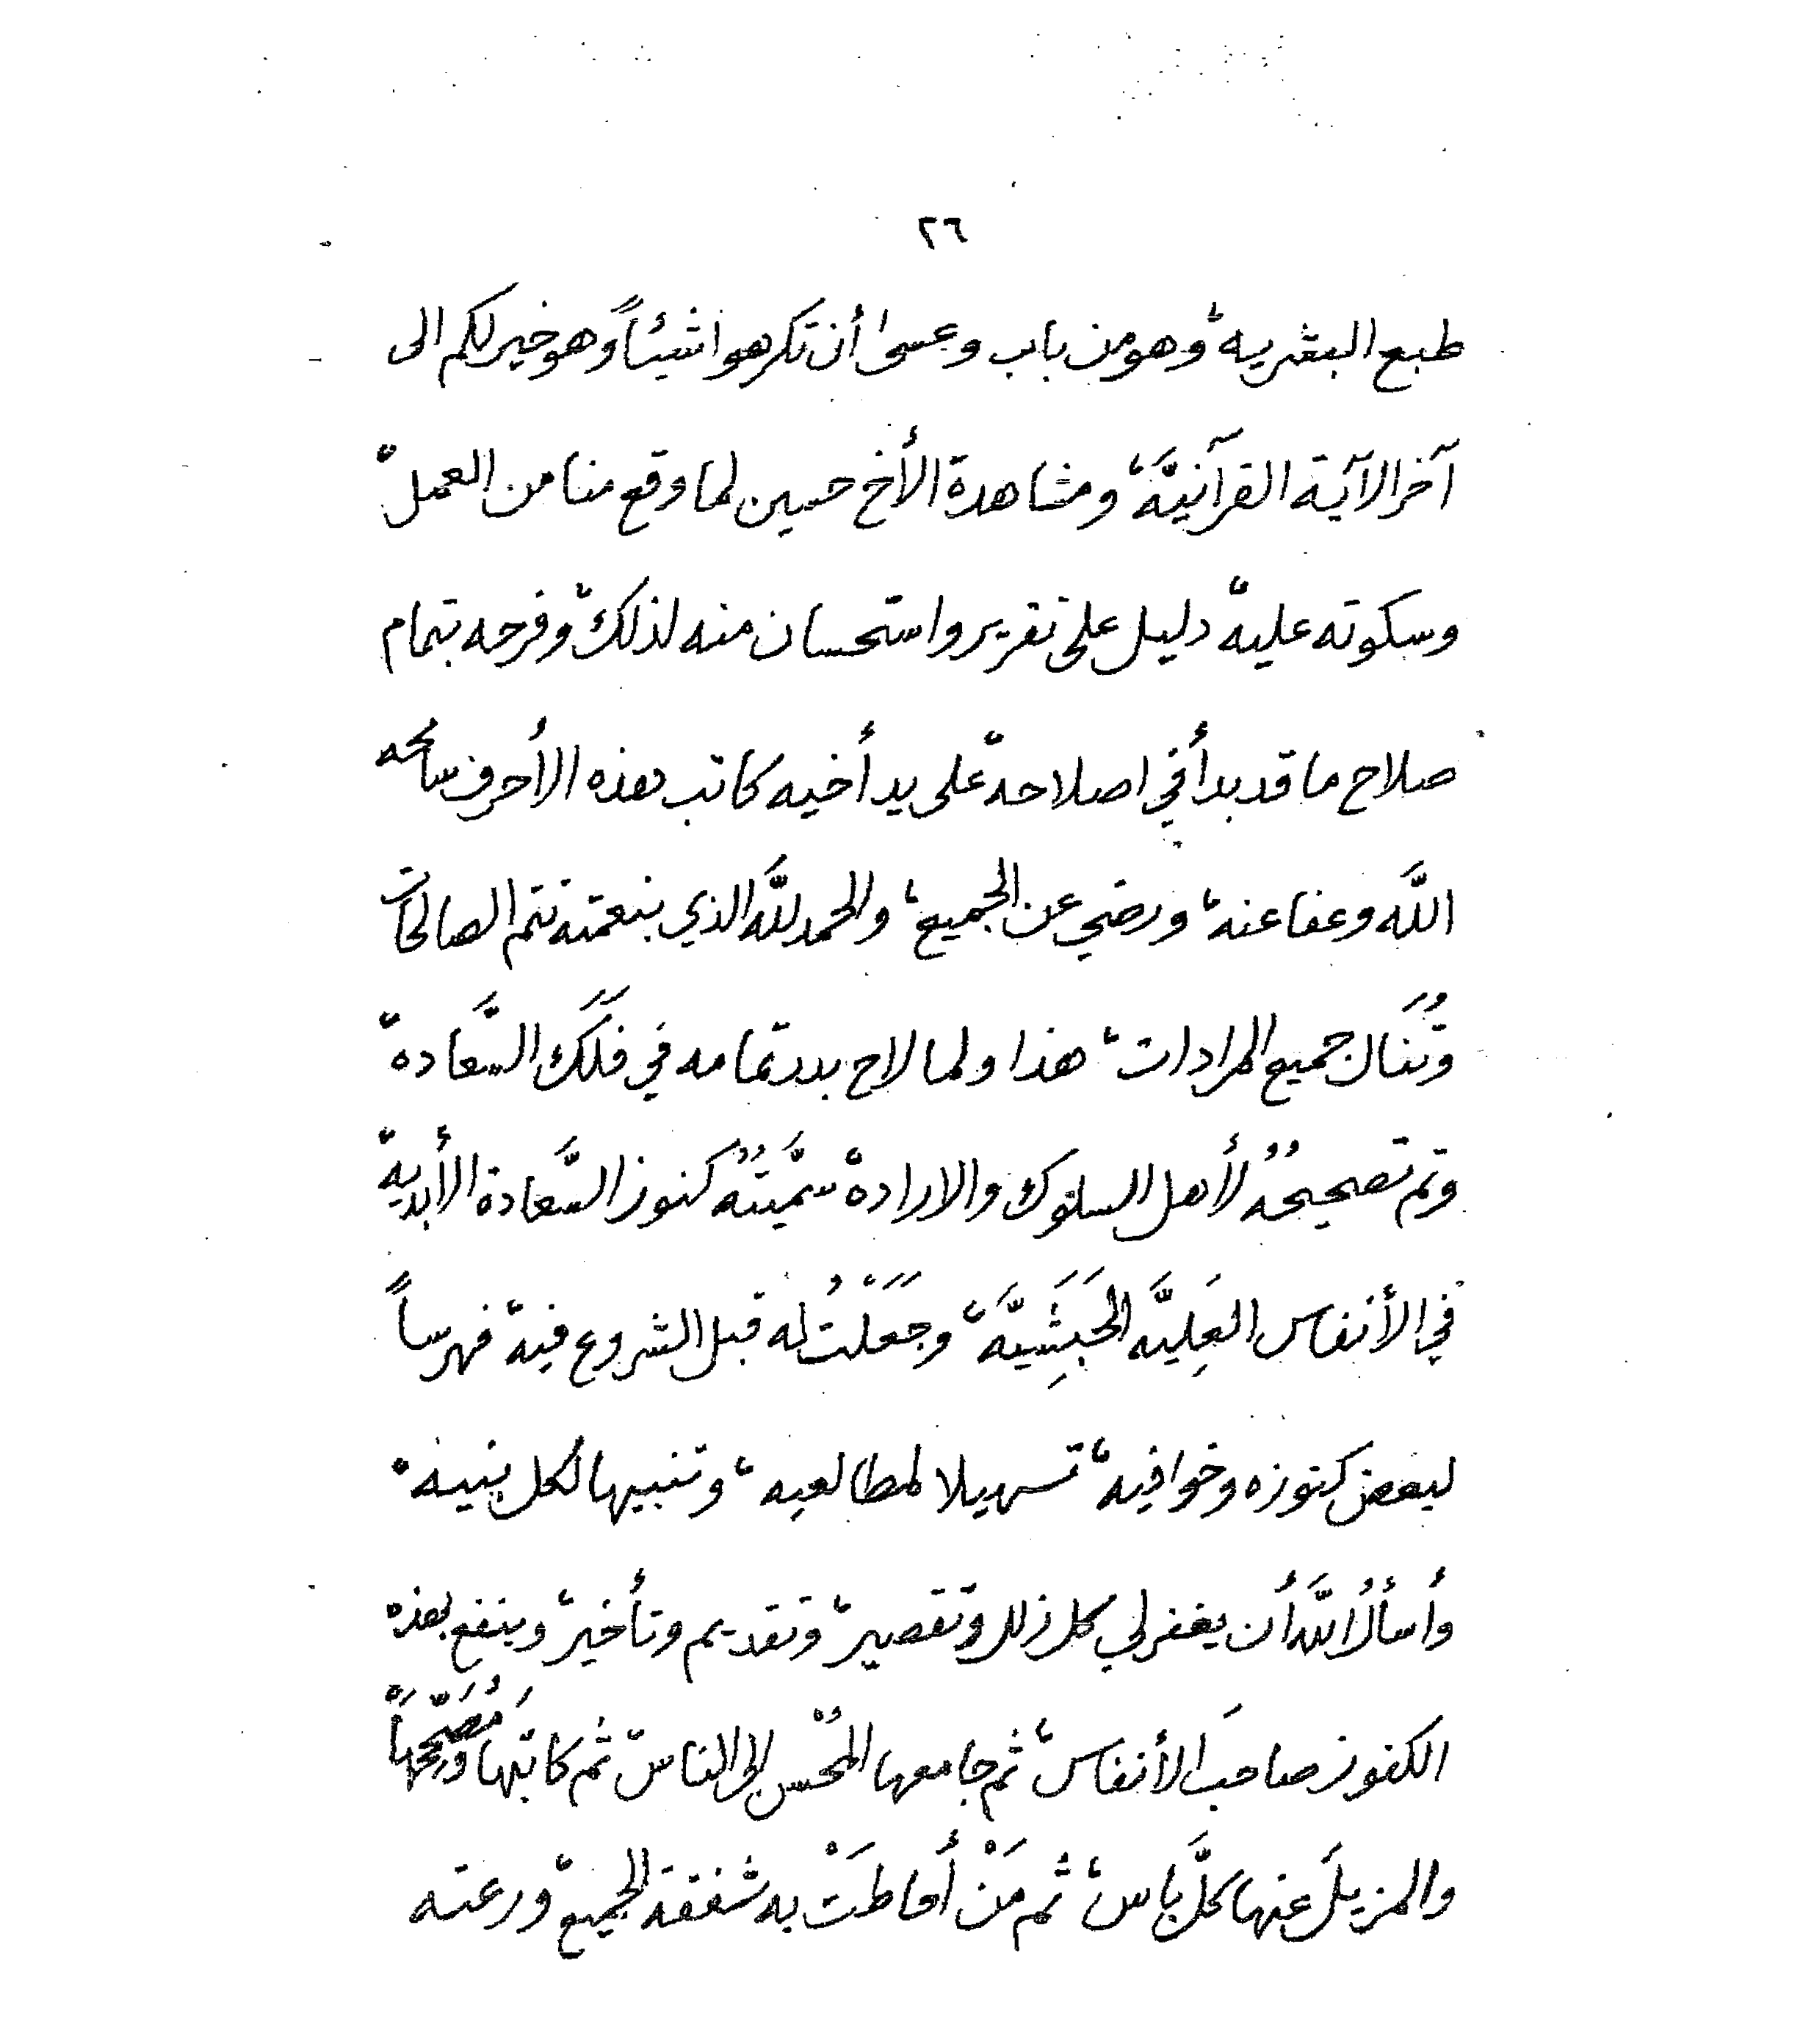 ٢٦
طبع البشرية، وهو من باب وعسىٰ أن تكرهوا شيئاً وهو خير لكم الى
آخر الآية القرآنيَّة، ومشاهدة الأخ حسين لما وقع منا من العمل،
وسكوته عليه، دليل على تقرير واستحسان منه لذلك، وفرحه بتمام
صلاح ما قد بدأ في اصلاحه، على يد أخيه كاتب هذه الأحرف سامحه
اللَّه وعفا عنه، ورضي عن الجميع، والحمد للَّه الذي بنعمته تتم الصالحات
وتُنَال جميع المرادات، هذا ولما لاح بدر تمامه في فلَكَ السَّعادة،
وتم تصحيحُهُ لأهل السلوك والارادة، سمَّيتُهُ كنوز السَّعادة الأبدية،
في الأنفاس العَلِيَّه الحَبَشِيَّة، وجَعَلْتُ له قبل الشروع فيه، فهرساً
لبعض كنوزه وخوافيه، تسهيلا لمطالعيه، وتنبيها لكل نبيه.
وأسألُ اللَّه أن يغفر لي كل زلل وتقصير، وتقديم وتأخير، وينفع بهذه
الكنوز صاحبَ الأنفاس، ثم جامعها المُحْسن إلى الناس، ثم كاتبها ومُصَحِّحَها
والمزيلَ عنها كلَّ باس، ثم مَنْ أحاطَتْ به شفقة الجميع، ورعته